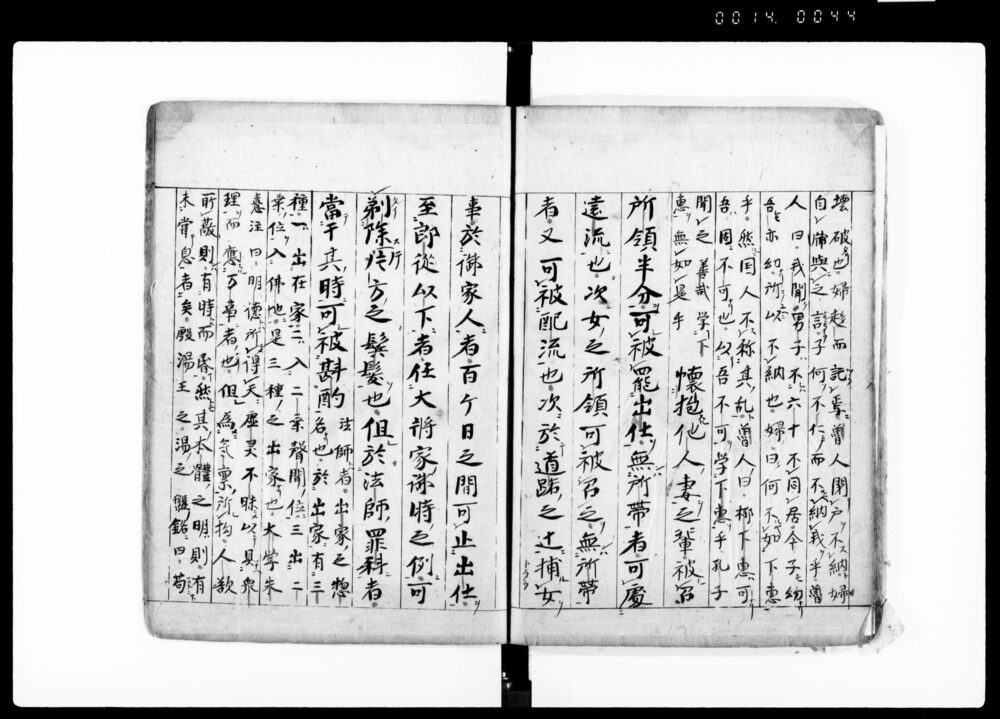 0014.0044
壊破也婦趍而託焉魯人閇戸不納婦
自牖與之言子何不仁而不納我乎魯
人曰我聞男子不六十不同居今子幼
吾亦幼所以不納也婦曰何不如下惠
乎然国人不称其乱魯人曰柳下惠可
吾固不可也以吾不可学下惠乎孔子
聞之善哉学下
惠無如是乎懐抱他人妻之輩被召
所領半分可被罷出仕無所帯者可處
遠流也次女之所領可被召之無所帯
者又可被配流也次於道路之辻捕女
トラフ
事於御家人者百ケ日之間可止出仕
至郎從以下者任大將家御時之例可
剃除片方之鬢髮也但於法師罪科者
當于其時可被斟酌法師者出家之惣
名也於出家有三
種一出在家二入二乗聲聞位三出二
乗位入佛地是三種之出家也大学朱
憙注曰明德所得天虚灵不昧以具衆
理而應万事者也但為気禀所拘人欲
所蔽則有時而昏然其本體之明則有
未甞息者矣殷湯王之湯之盤銘曰苟